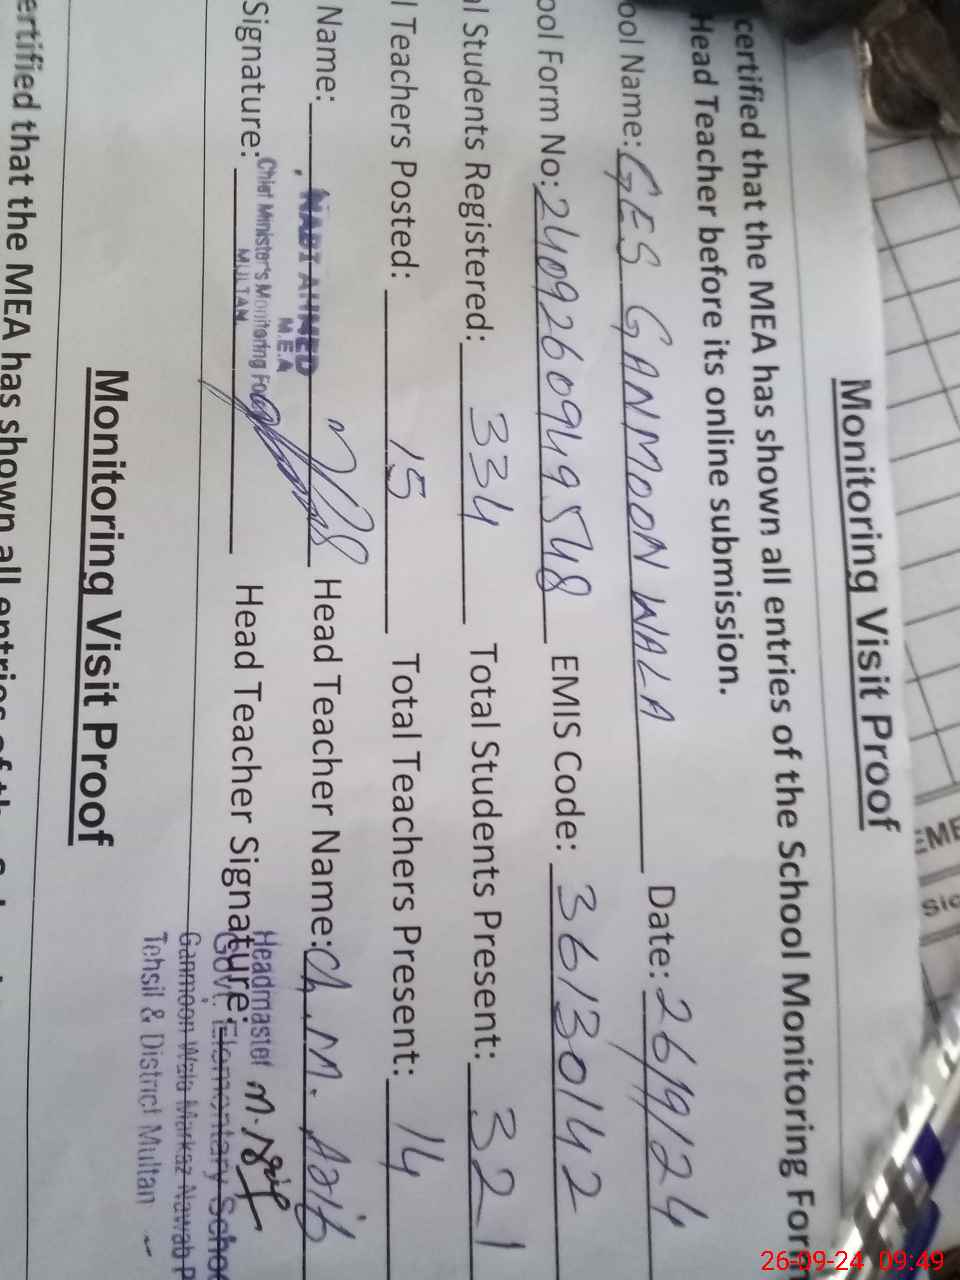 Monitoring Visit Proof
certified that the MEA has shown all entries of the School Monitoring Form
Head Teacher before its online submission.
ool Name: GES GANMOON WALA Date: 26/9/24
ool Form No: 2409260949548 EMIS Code: 36130142
al Students Registered: 334 Total Students Present: 321
l Teachers Posted: 15 Total Teachers Present: 14
Name: NABI AHMED Head Teacher Name: Ch. M.
M.E.A
Signature: Head Teacher Signature:
Chief Minister's Monitoring Force
MULTAN
Headmaster
Govt. Elementary School
Ganmoon Wala Markaz Nawab P
Tehsil & District Multan
Monitoring Visit Proof
ertified that the MEA has shown all entries of the
EME
26-09-24 09:49